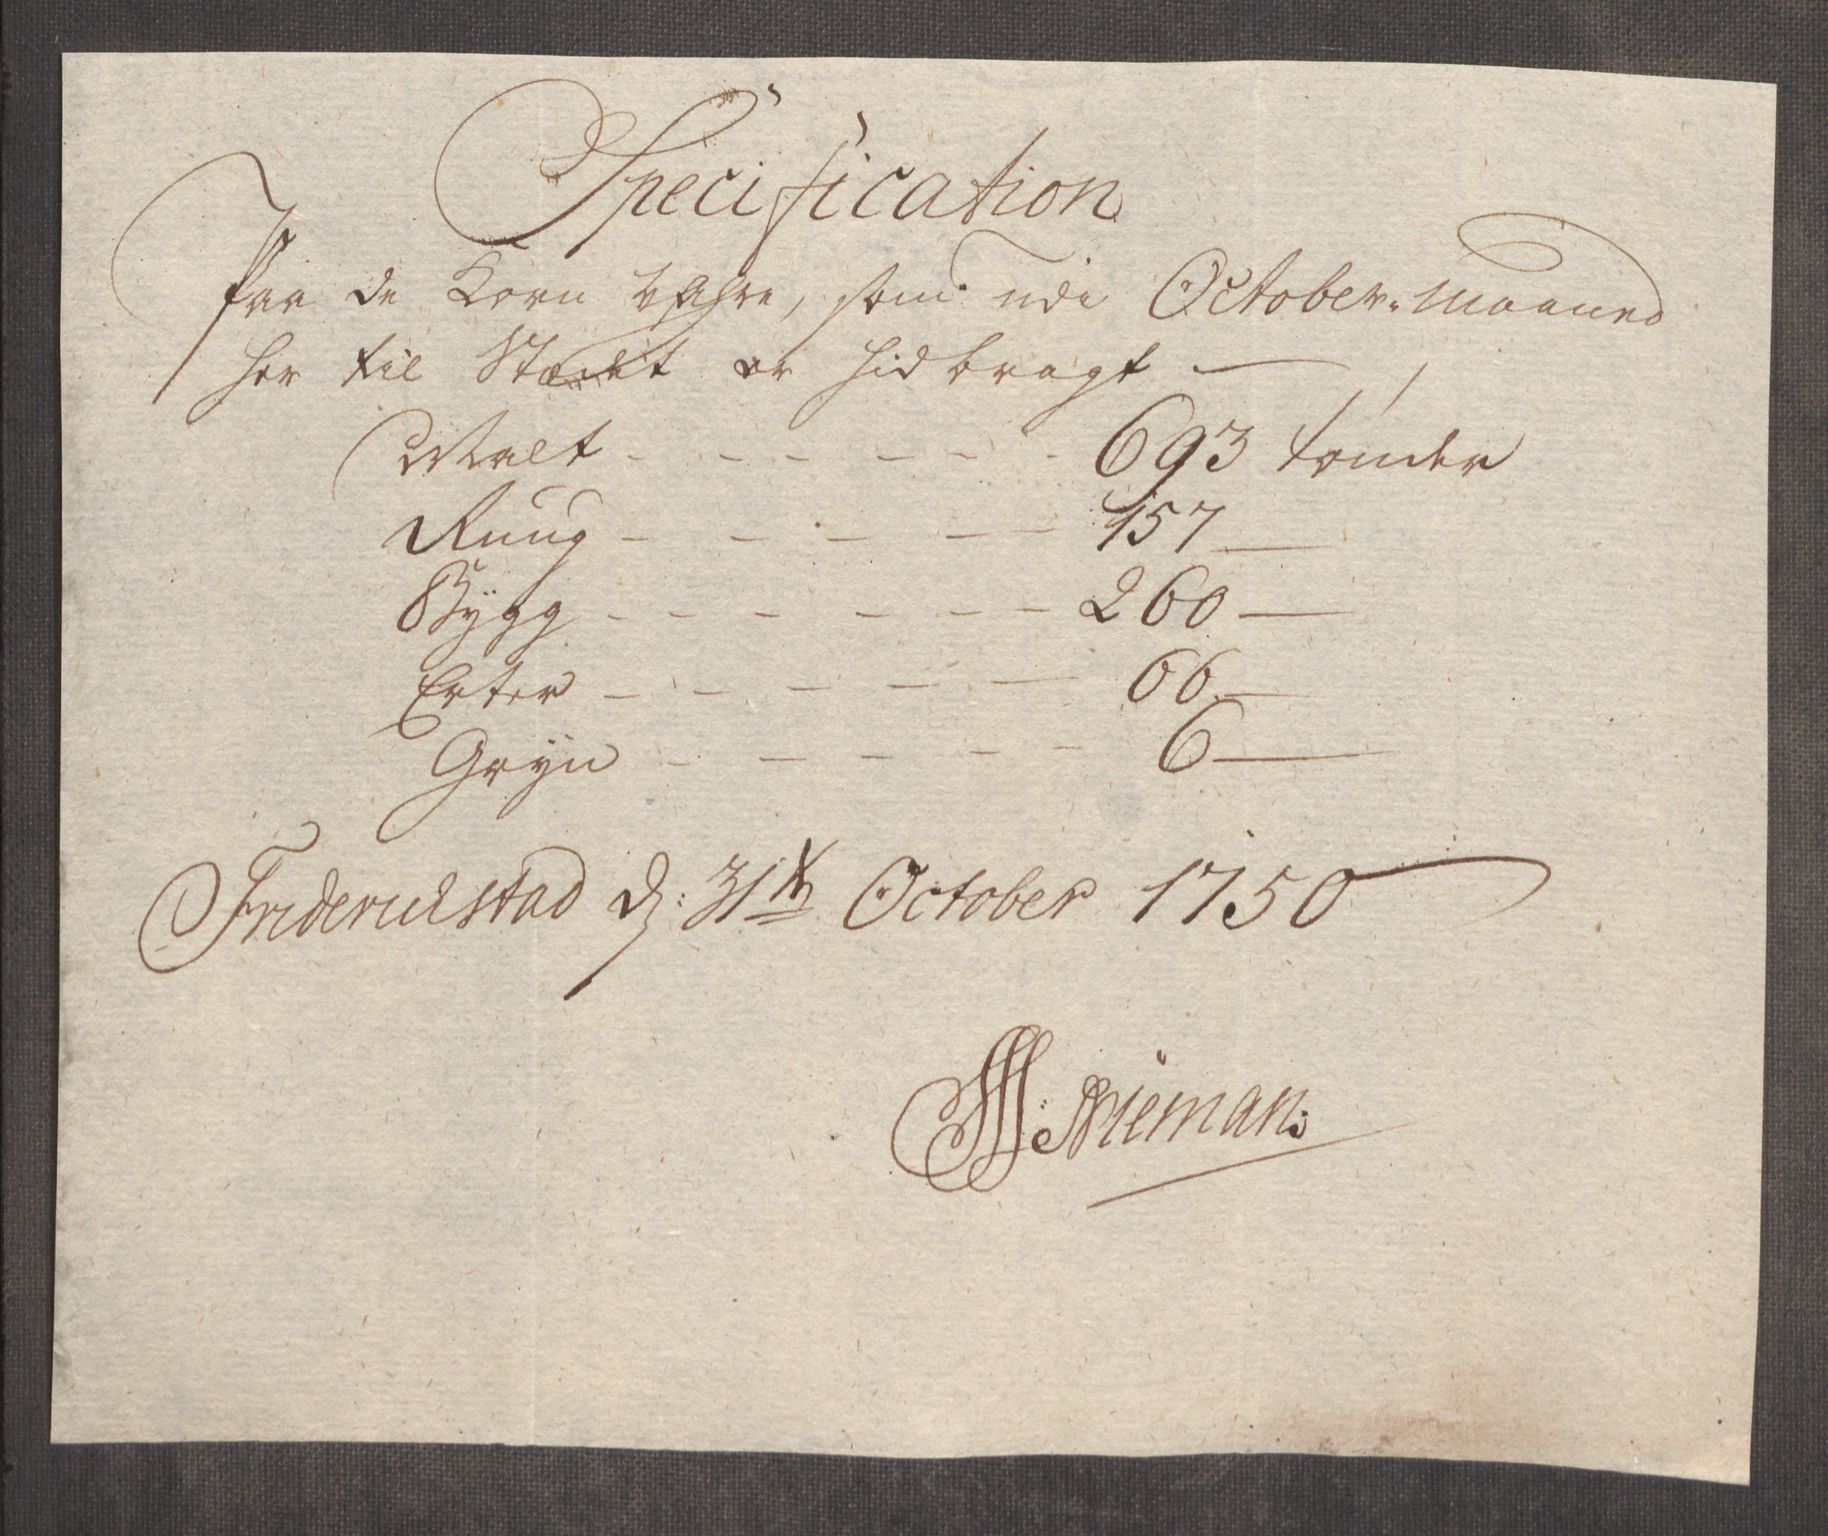 Specification
Paa de Korn Vahre, som udi October Maaned
her til Stædet er hid bragt
Malt - - - - - - 693 tønder
Ruug - - - - - 157 —
Bygg - - - - - - 260 —
Erter - - - - - 66 —
Gryn - - - - - 6 —
Friderichstad d: 31te October 1750
Nieman